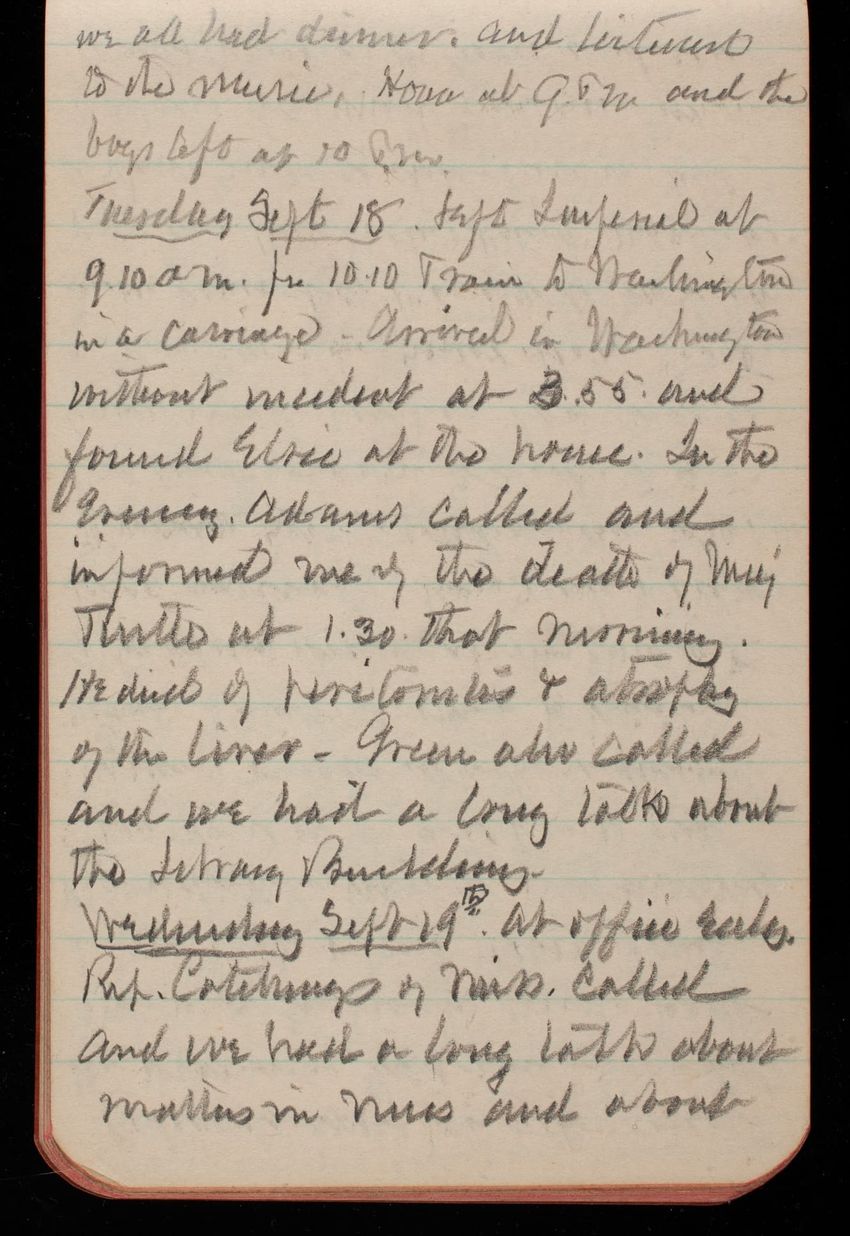 we all had dinner. and listened
to the music, at 9 P m and the
boys left at 10 P.m.
Tuesday Sept 18. Left Imperial at
9.10 a m. for 10.10 Train to Washington
in a carriage - Arrived in Washington
without incident at 3.55. and
found Elsie at the house. In the
Evening. Adams called and
informed me of the death of Maj
Tuttle at 1.30 that morning.
He died of peritonitis & atrophy
of the liver - Green also called
and we had a long talk about
the Library Building.
Wednesday Sept 19th. At office early.
Rep. Catchings of Miss. called
and we had a long talk about
matters in Miss and about